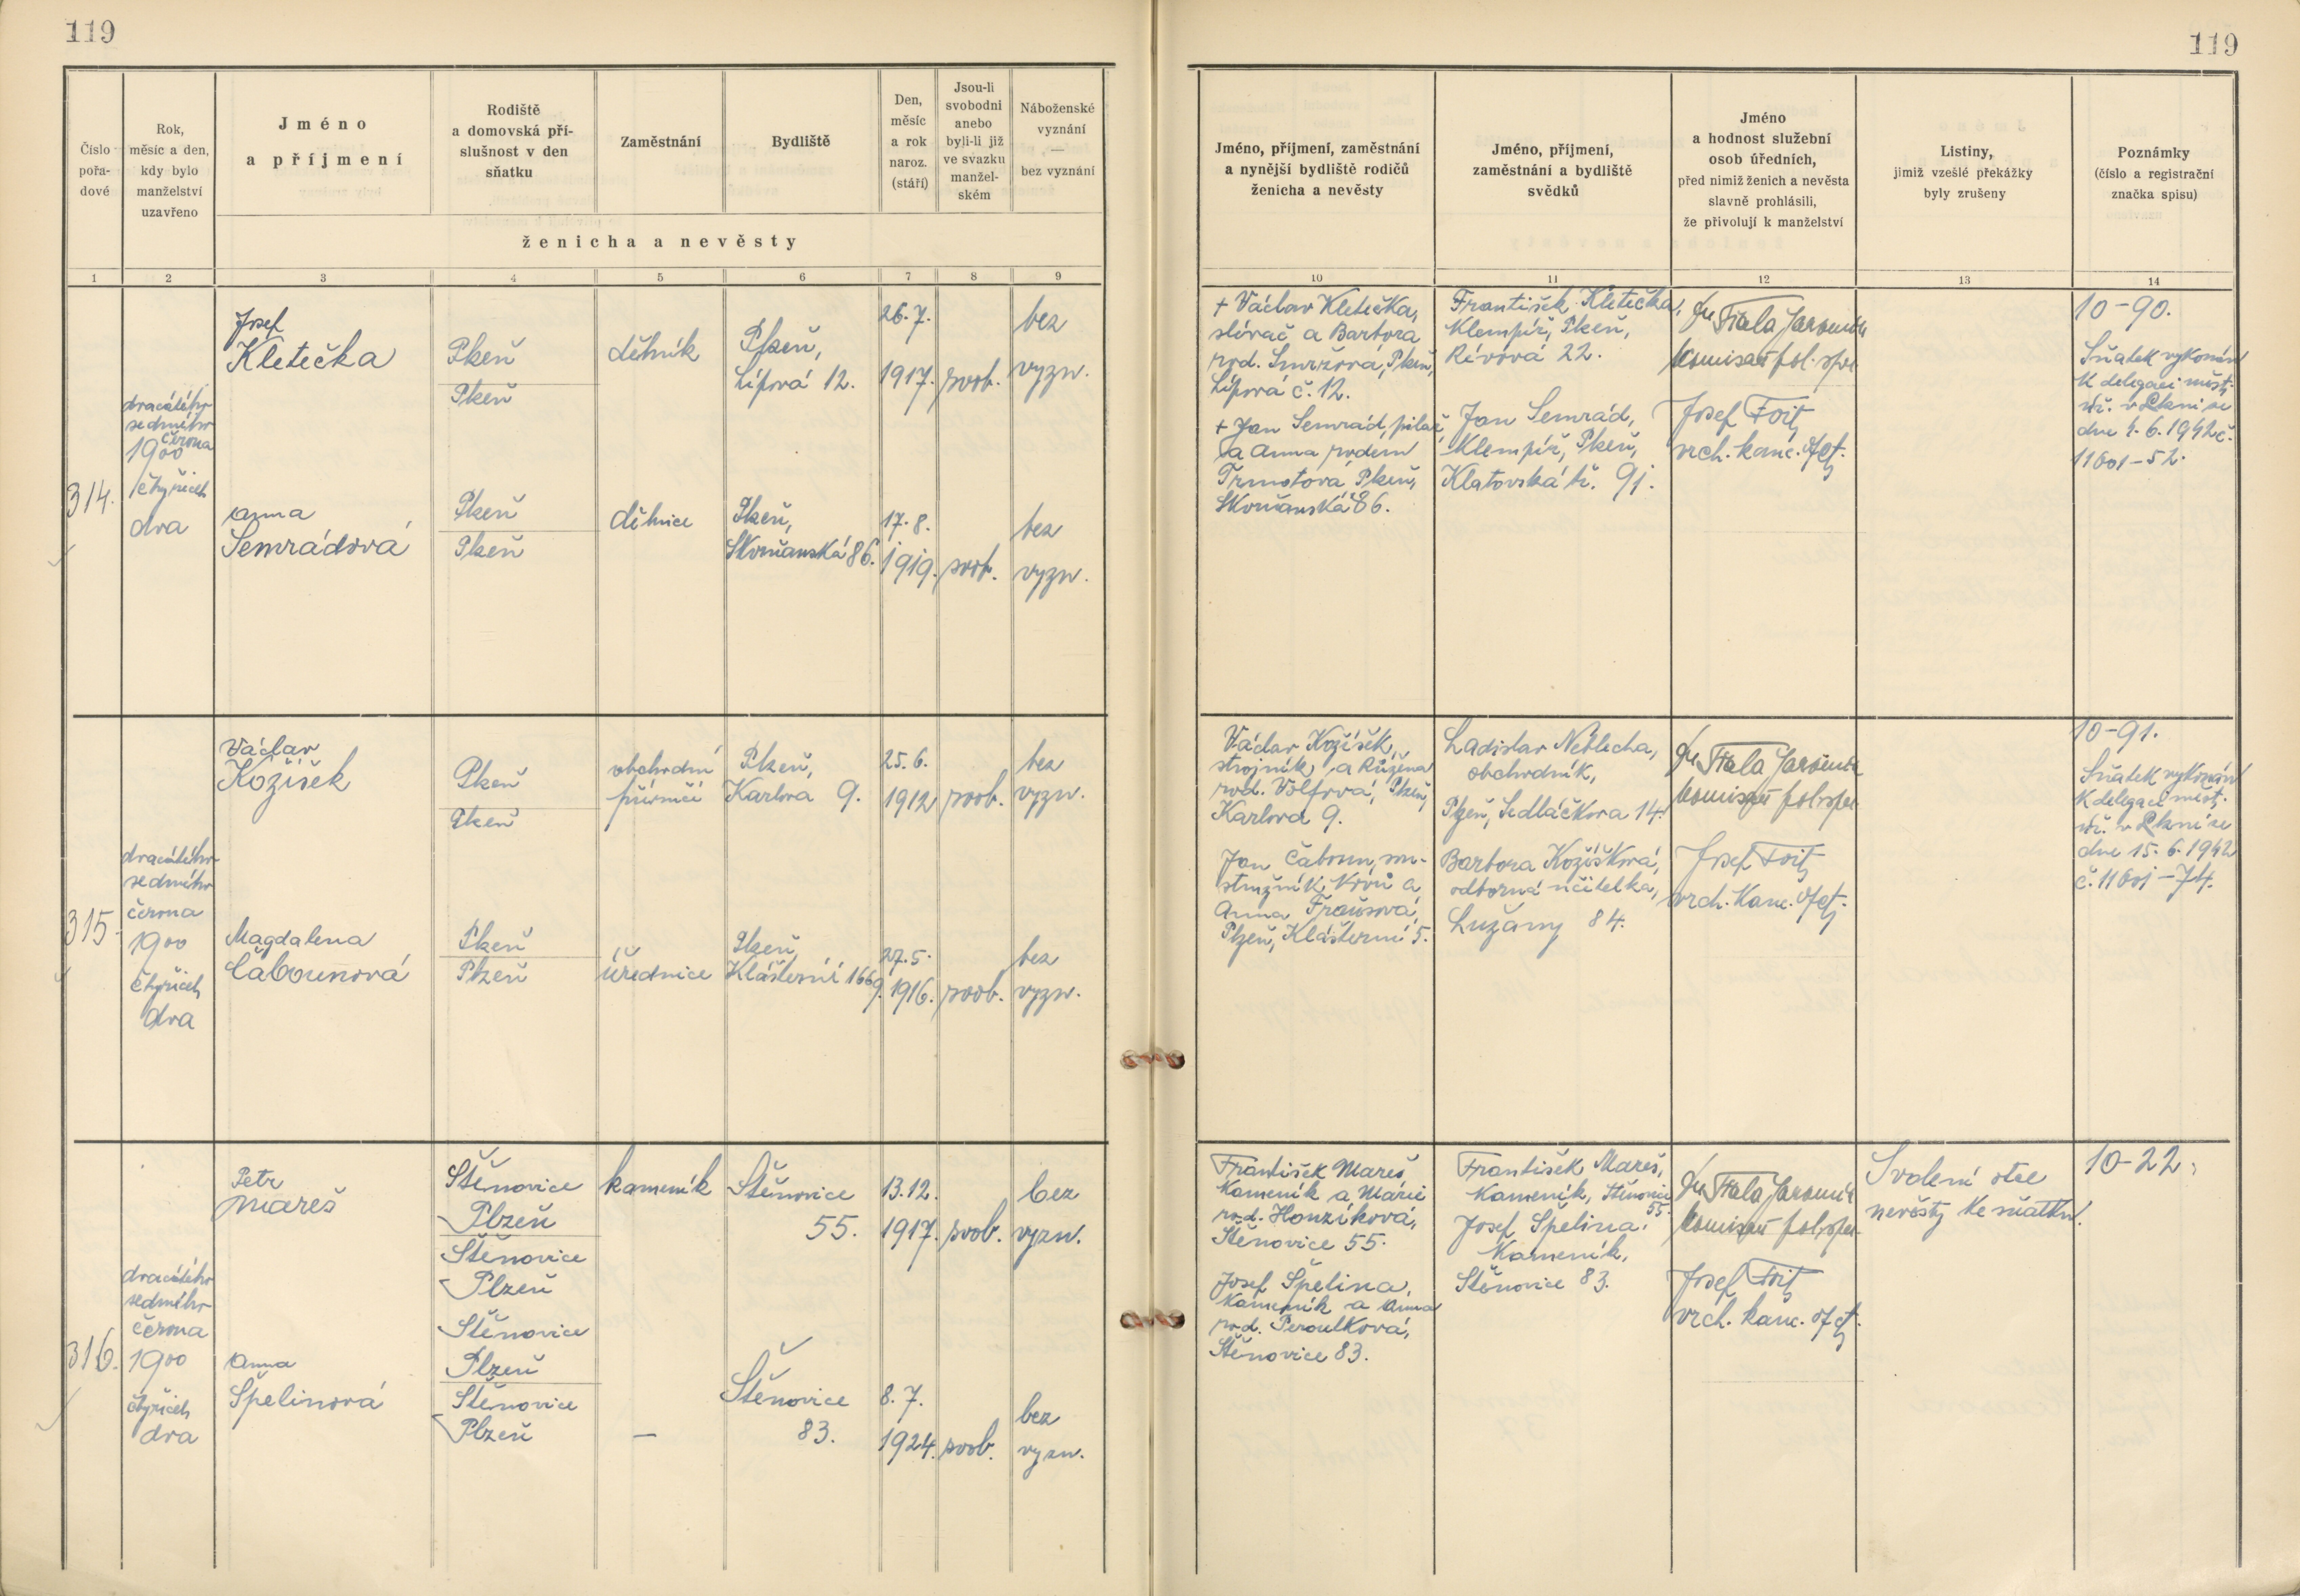 119
119
Číslo
pořa-
dové
Rok,
měsíc a den,
kdy bylo
manželství
uzavřeno
Jméno
a příjmení
Rodiště
a domovská pří-
slušnost v den
sňatku
Zaměstnání
Bydliště
Den,
měsíc
a rok
naroz.
(stáří)
Jsou-li
svobodni
anebo
byli-li již
ve svazku
manžel-
ském
Náboženské
vyznání
—
bez vyznání
ženicha a nevěsty
Jméno, příjmení, zaměstnání
a nynější bydliště rodičů
ženicha a nevěsty
Jméno, příjmení,
zaměstnání a bydliště
svědků
Jméno
a hodnost služební
osob úředních,
před nimiž ženich a nevěsta
slavně prohlásili,
že přivolují k manželství
Listiny,
jimiž vzešlé překážky
byly zrušeny
Poznámky
(číslo a registrační
značka spisu)
1 2 3 4 5 6 7 8 9
10 11 12 13 14
314.
dvacátého
sedmého
června
1900
čtyřiceti
dva
Josef
Kletečka
Plzeň
Plzeň
dělník
Plzeň,
Lípová 12.
26. 7.
1917.
svob.
bez
vyzn.
Anna
Semrádová
Plzeň
Plzeň
dělnice
Plzeň,
Skvrňanská 86.
17. 8.
1919.
svob.
bez
vyzn.
+ Václav Kletečka,
slévač a Barbora
rod. Smržová, Plzeň,
Lípová č. 12.
+ Jan Semrád, pilař
a Anna rodem
Plzeň,
Skvrňanská 86.
František Kletečka,
Klempíř, Plzeň,
Révová 22.
Jan Semrád,
Klempíř, Plzeň,
Klatovská tř. 91.
Fiala Jaromír
komisař pol. spr.
Josef Foit
vrch. kanc. ofic.
10-90.
Sňatek vykonán
k delegaci měst.
úř. v Plzni ze
dne 4. 6. 1942 č.
11601-52.
315.
dvacátého
sedmého
června
1900
čtyřiceti
dva
Václav
Kožíšek
Plzeň
Plzeň
obchodní
příručí
Plzeň,
Karlova 9.
25. 6.
1912
svob.
bez
vyzn.
Magdalena
Čabounová
Plzeň
Plzeň
úřednice
Plzeň
Klášterní 1669.
27. 5.
1916.
svob.
bez
vyzn.
Václav Kožíšek,
strojník, a Růžena
rod. Volfová, Plzeň,
Karlova 9.
Jan Čaboun, sou-
stružník kovů a
Anna Frousová,
Plzeň, Klášterní 5.
Ladislav Neblecha,
obchodník,
Plzeň, Sedláčkova 14.
Barbora Kožíšková,
odborná učitelka,
Lužany 84.
Fiala Jaromír
komisař pol. spr.
Josef Foit
vrch. kanc. ofic.
10-91.
Sňatek vykonán
k delegaci měst.
úř. v Plzni ze
dne 15. 6. 1942
č. 11601-74.
316.
dvacátého
sedmého
června
1900
čtyřiceti
dva
Petr
Mareš
Štěnovice
Plzeň
Štěnovice
Plzeň
kameník
Štěnovice
55.
13. 12.
1917.
svob.
bez
vyzn.
Anna
Špelinová
Štěnovice
Plzeň
Štěnovice
Plzeň
—
Štěnovice
83.
8. 7.
1924.
svob.
bez
vyzn.
František Mareš
Kameník a Marie
rod. Honzíková,
Štěnovice 55.
Josef Špelina,
Kameník a Anna
rod. Peroulková,
Štěnovice 83.
František Mareš,
Kameník, Štěnovice
55.
Josef Špelina,
Kameník,
Štěnovice 83.
Fiala Jaromír
komisař pol. spr.
Josef Foit
vrch. kanc. ofic.
Svolení otce
nevěsty ke sňatku.
10-22.